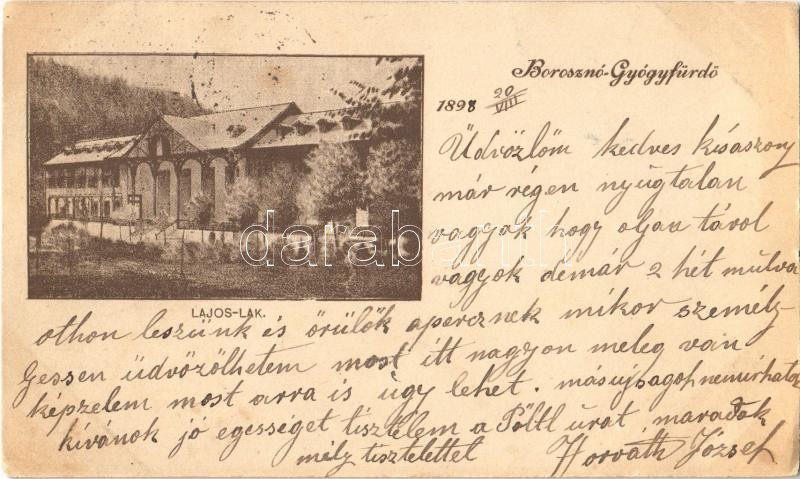 Borosznó-Gyógyfürdő
1898 20/VIII
LAJOS-LAK.
Üdvözlöm kedves kisaszony
már régen nyugtalan
vagyok hogy oljan távol
vagyok demár 2 hét mulva
othon leszünk és örülök apercznek mikor személy-
gessen üdvözölhetem most itt nagyon meleg van
képzelem most arra is úgy lehet. másujsagot nemirhatok
kívánok jó egességet tisztelem a Pöltl úrat maradok
mély tisztelettel Horváth József
darabanth.com